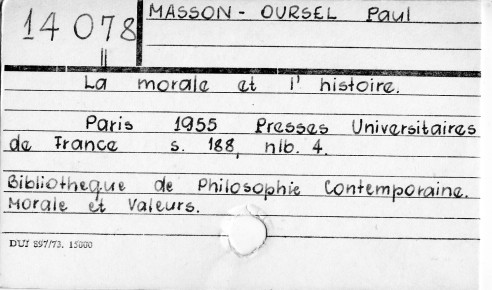 14 078
MASSON - OURSEL Paul
La morale et l' histoire.
Paris 1955 Presses Universitaires
de France s. 188, nlb. 4.
Bibliotheque de Philosophie Contemporaine.
Morale et Valeurs.
DUJ 897/73. 15000